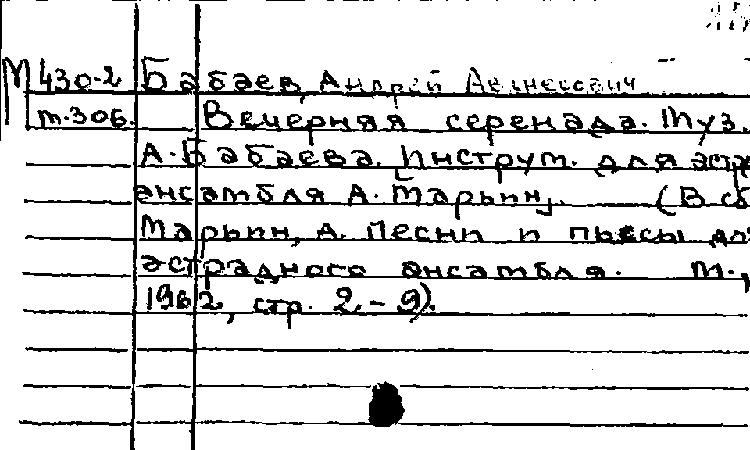 М 430-2 Бабаев, Андрей Аванесович
т.306. Вечерняя серенада. Муз.
А. Бабаева. Инструм. для эстр
ансамбля А. Марьин,. (В сб
Марьин, А. Песни и пьесы для
эстрадного ансамбля. М.,
1962, стр. 2.-9).